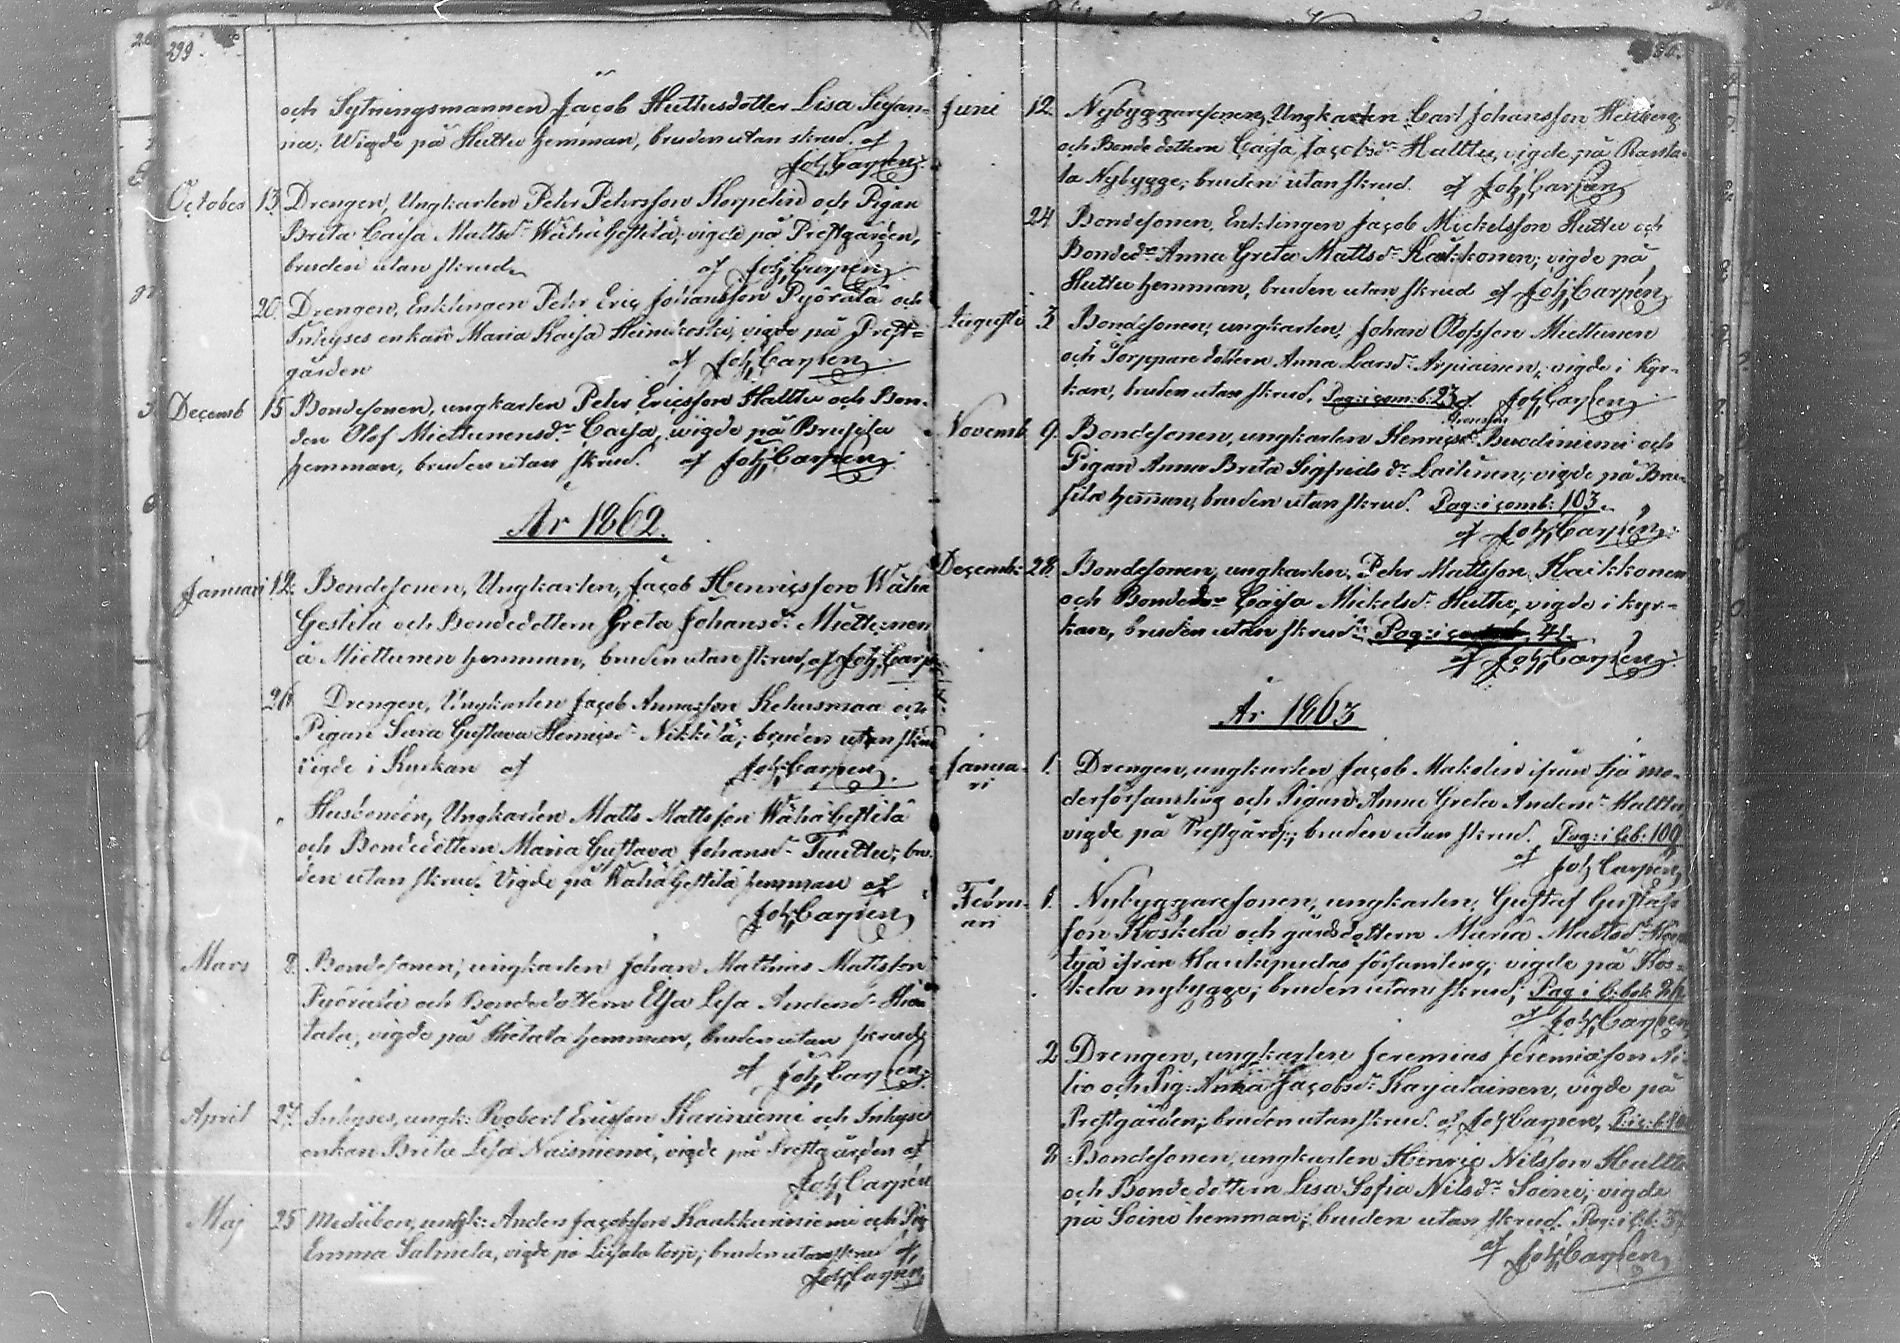 299
och Sytningsmannen Jacob Huttusdotter Lisa Susan-
na; Wigde på Huttu hemman, bruden utan skrud. af
Joh. Carpén.
October 13. Drengen, Ungkarlen Pehr Pehrsson Korpelin och Pigan
Brita Caisa Mattsdr WähäHeftilä; vigde på Prestgården,
bruden utan skrud af Joh. Carpén.
20. Drengen, Enklingen Pehr Eric Johansson Pyörälä och
Inhyses enkan Maria Kaisa Heinikoski, vigde på Prest-
gården af Joh. Carpén
Decemb 15. Bondesonen, ungkarlen Pehr Ericsson Halttu och Bon-
den Olof Miettunensdr Caisa, wigde på
hemman, bruden utan skrud. af Joh. Carpén.
År 1862.
Januari 12. Bondesonen, Ungkarlen, Jacob Henricsson Wäha
Gestilä och Bondedottern Greta Johansdr Miettunen
å Miettunen hemman, bruden utan skrud, af Joh. Carp
26 Drengen, Ungkarlen Jacob Annasson Kehusmaa och
Pigan Sara Gustava Henricsdr Nikkilä; bruden utan skrud
vigde i Kyrkan af Joh. Carpén.
" Husbonden, Ungkarlen Matts Mattsson Wähä Gestilä
och Bondedottern Maria Gustava Johansdr Tuuttu; bru-
den utan skrud. Vigde på Wähä Gestilä hemman af
Joh. Carpén
Mars 8. Bondesonen, ungkarlen Johan Mathias Mattsson
Pyörälä och Bondedottern Elsa Lisa Andersdr Hie-
tala, vigde på Hietala hemman, bruden utan skrud
af Joh. Carpén.
April 27. Inhyses, ungk: Robert Ericsson Kariniemi och Inhyses
enkan Brita Lisa Naisniemi, vigde på Prestgården af
Joh. Carpén
Maj 25 ungk: Anders Jacobsson Kaakkuriniemi och Pig
Emma Salmela, vigde på torp; bruden utan skrud af
Joh. Carpén
Juni 12. Nybyggaresonen, Ungkarlen Carl Johansson
och Bondedottern Caisa Jacobsdr Halttu, vigde på
Nybygge; bruden utan skrud. af Joh. Carpén
24 Bondesonen, Enklingen Jacob Mickelsson Huttu och
Bondedr Anna Greta Mattsdr Kaikkonen; vigde på
Huttu hemman, bruden utan skrud af Joh. Carpén
Augusti 3. Bondesonen, ungkarlen, Johan Olofsson Miettunen
och Torpparedottern Anna Larsdr Arpiainen; vigde i Kyr-
kan, bruden utan skrud. Pag: i com: b. 23 af Joh. Carpén
Novemb 9. Bondesonen, ungkarlen Buodiniemi och
Pigan Anna Brita Sigfridsdr Laitinen; vigde på Bru-
sila hemman, bruden utan skrud. Pag: i comb: 103.
af Joh. Carpén.
Decemb: 28. Bondesonen, ungkarlen, Pehr Mattsson Kaikkonen
och Bondedr Caisa Mickelsdr Huttu, vigde i kyr-
kan, bruden utan skrud. Pag: i 41.
af Joh. Carpén.
År 1863
Janua- 1. Drengen, ungkarlen Jacob Makelin ifrån Ijo mo-
ri
derförsamling och Pigan Anna Greta Andersdr Halttu,
vigde på Prestgård:; bruden utan skrud. Pag: i b: 109
af Joh Carpén
Febru- 1. Nybyggaresonen, ungkarlen, Gustaf Gustafs-
ari
son Koskela och gårdsdottern Maria Mattsdr
ifrån Haukipudas församling; vigde på Kos-
kela nybygge; bruden utan skrud, Pag i b: bok
af Joh. Carpén
2 Drengen, ungkarlen Jeremias Jeremiasson
och Pig: Anna Jacobsdr Karjalainen, vigde på
Prestgården; bruden utan skrud. af Joh Carpén,
2. Bondesonen, ungkarlen Henric Nilsson Hultt
och Bondedottern Lisa Sofia Nilsdr Soini; vigde
på Soini hemman; bruden utan skrud. Pag: i b: 37
af Joh. Carpén